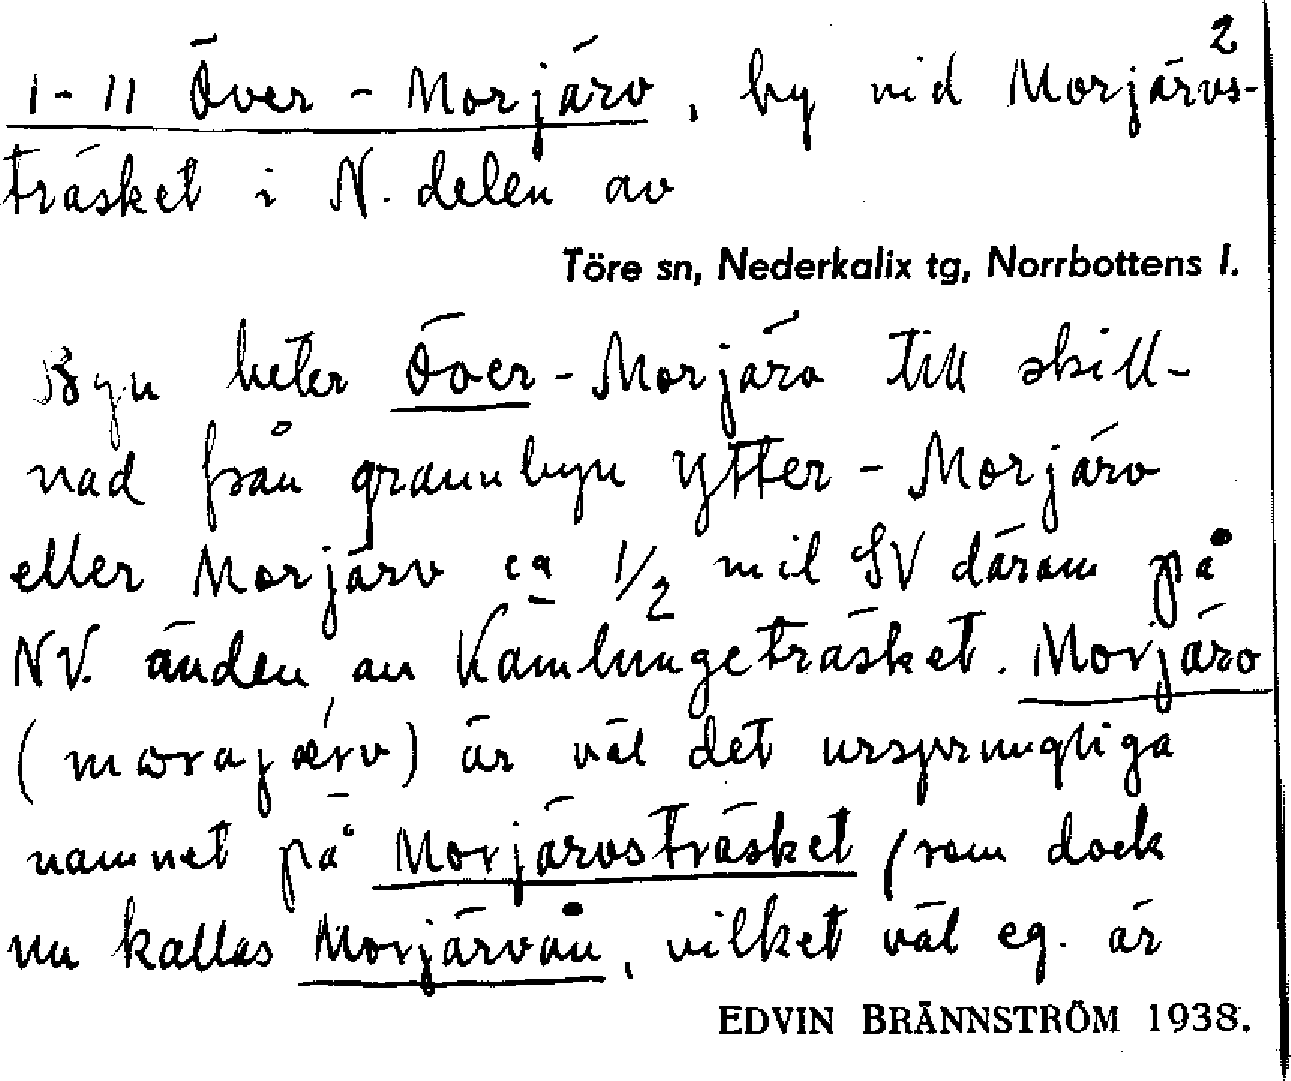 2
1-11 Över-Morjärv, by vid Morjärvs-
träsket i N. delen av
Töre sn, Nederkalix tg, Norrbottens l.
Byn heter Över-Morjärv till skill-
nad från grannbyn Ytter-Morjärv
eller Morjärv ca 1/2 mil SV därom på
NV. änden av Kamlungeträsket. Morjärv
är väl det ursprungliga
namnet på Morjärvsträsket (som dock
nu kallas Morjärvån, vilket väl eg. är
EDVIN BRÄNNSTRÖM 1938.